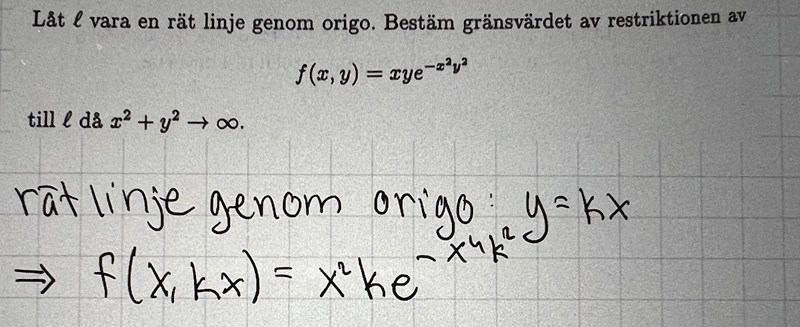 Låt ℓ vara en rät linje genom origo. Bestäm gränsvärdet av restriktionen av
f(x, y) = xye^{-x²y²}
till ℓ då x² + y² → ∞.
rät linje genom origo: y = kx
⇒ f(x, kx) = x²ke^{-x⁴k²}